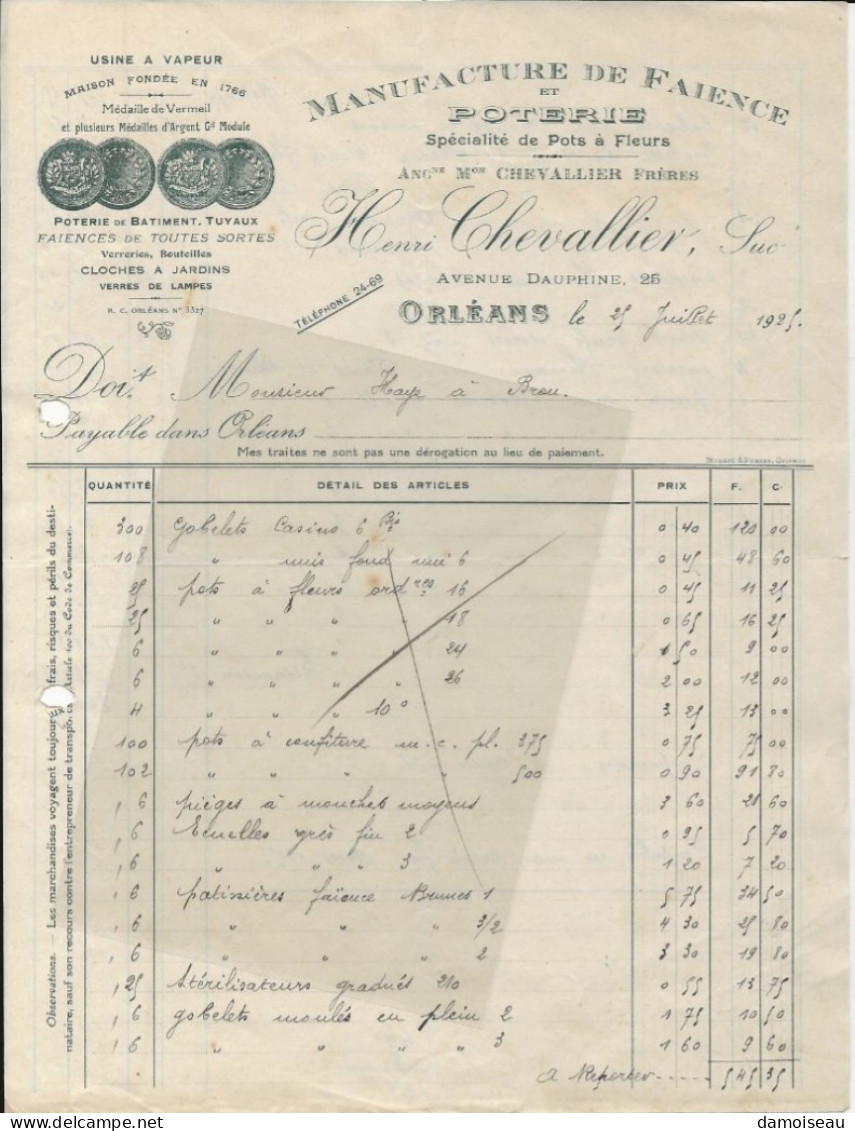 USINE A VAPEUR
MAISON FONDÉE EN 1766
Médaille de Vermeil
et plusieurs Médailles d'Argent Gd Module
POTERIE DE BATIMENT, TUYAUX
FAIENCES DE TOUTES SORTES
Verreries, Bouteilles
CLOCHES A JARDINS
VERRES DE LAMPES
R. C. ORLÉANS No 3327
MANUFACTURE DE FAIENCE
ET
POTERIE
Spécialité de Pots à Fleurs
ANCNE MON CHEVALLIER FRÈRES
Henri Chevallier, Suc
AVENUE DAUPHINE, 25
TÉLÉPHONE 24-69
ORLÉANS le 25 Juillet 1925.
Doit Monsieur Haye à Brou.
Payable dans Orléans
Mes traites ne sont pas une dérogation au lieu de paiement.
QUANTITÉ DÉTAIL DES ARTICLES PRIX F. C.
300 Gobelets Casino 6 0 40 120 00
108 " unis fond uni 6 0 45 48 60
25 pots à fleurs ordres 16 0 45 11 25
25 " " " " 18 0 65 16 25
6 " " " " 24 1 50 9 00
6 " " " " 26 2 00 12 00
4 " " " 10° 3 25 13 00
100 pots à confiture m.c. pl. 375 0 75 75 00
102 " " " " 500 0 90 91 80
6 pièges à mouches moyens 3 60 21 60
6 Ecuelles grès fin 2 0 95 5 70
6 " " " 3 1 20 7 20
6 patissières faïence Brunes 1 5 75 34 50
6 " " " 3/2 4 30 25 80
6 " " " 2 3 30 19 80
25 Stérilisateurs gradués 210 0 55 13 75
6 gobelets moulés en plein 2 1 75 10 50
6 " " " " 3 1 60 9 60
A Reporter ---- 545 35
Observations. — Les marchandises voyagent toujours frais, risques et périls du desti-
nataire, sauf son recours contre l'entrepreneur de transpo Article 100 du Code de Commerce.
damoiseau